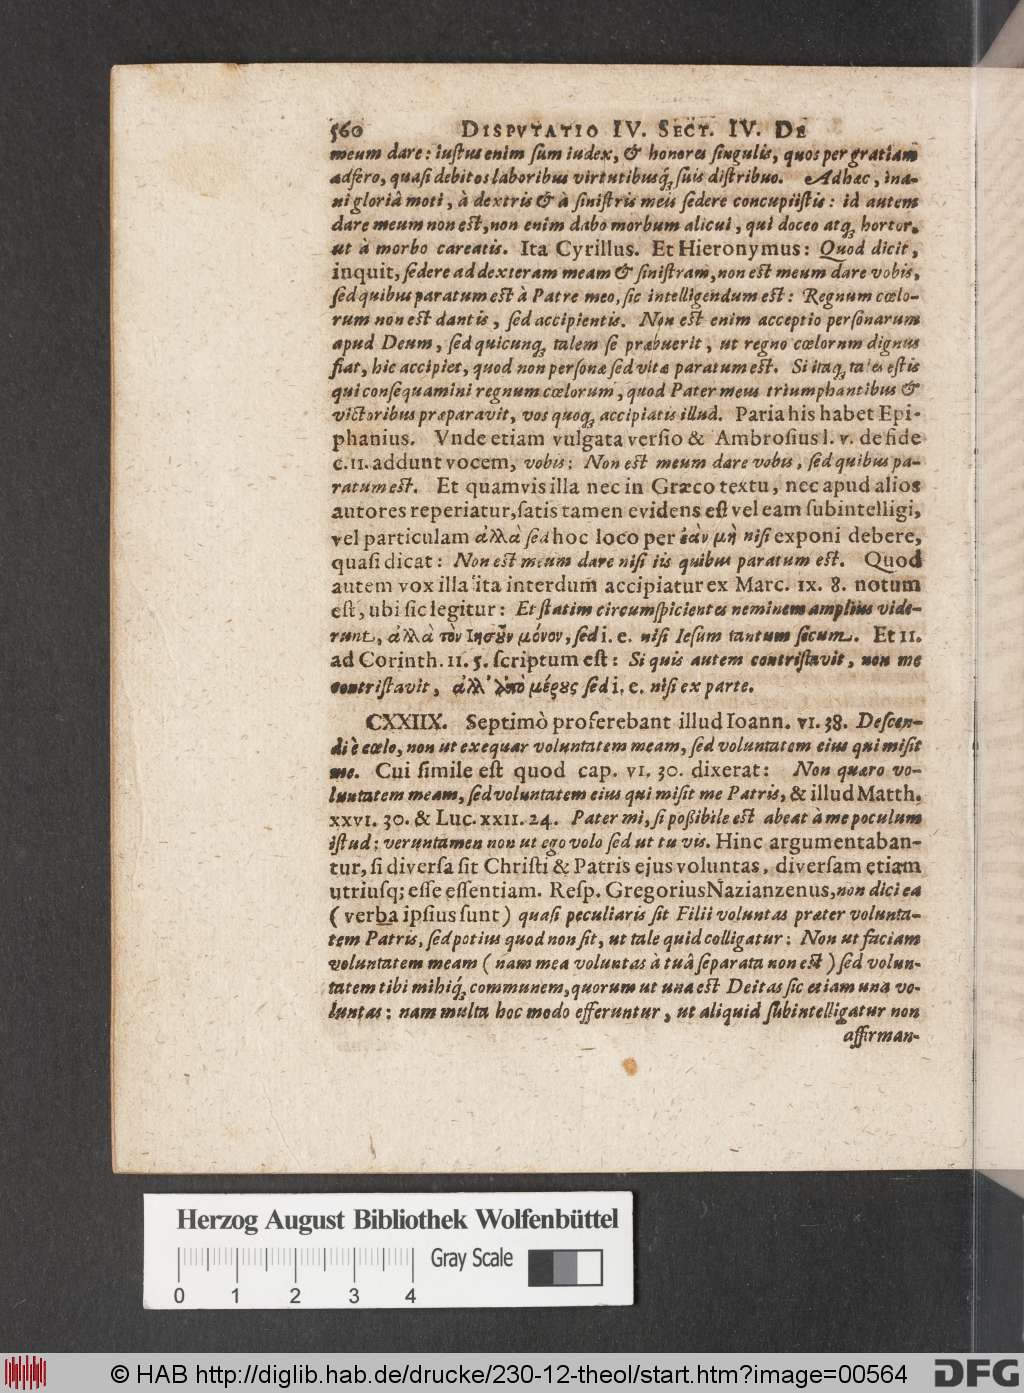 560 DISPVTATIO IV. SECT. IV. DE
meum dare: iustus enim sum iudex, & honores singulis, quos per gratiam
adfero, quasi debitos laboribus virtutibusq́; suis distribuo. Adhæc, ina-
ni gloriâ moti, à dextris & à sinistris meis sedere concupiistis: id autem
dare meum non est, non enim dabo morbum alicui, qui doceo atq; hortor,
ut à morbo careatis. Ita Cyrillus. Et Hieronymus: Quod dicit,
inquit, sedere ad dexteram meam & sinistram, non est meum dare vobis,
sed quibus paratum est à Patre meo, sic intelligendum est: Regnum cœlo-
rum non est dantis, sed accipientis. Non est enim acceptio personarum
apud Deum, sed quicunq; talem se præbuerit, ut regno cœlorum dignus
fiat, hic accipiet, quod non personæ sed vitæ paratum est. Si itaq; tales estis
qui consequamini regnum cœlorum, quod Pater meus triumphantibus &
victoribus præparavit, vos quoq; accipiatis illud. Paria his habet Epi-
phanius. Vnde etiam vulgata versio & Ambrosius l. v. de fide
c. 11. addunt vocem, vobis: Non est meum dare vobis, sed quibus pa-
ratum est. Et quamvis illa nec in Græco textu, nec apud alios
autores reperiatur, satis tamen evidens est vel eam subintelligi,
vel particulam ἀλλὰ sed hoc loco per ἐὰν μὴ nisi exponi debere,
quasi dicat: Non est meum dare nisi iis quibus paratum est. Quod
autem vox illa ita interdum accipiatur ex Marc. IX. 8. notum
est, ubi sic legitur: Et statim circumspicientes neminem amplius vide-
runt, ἀλλὰ τὸν Ἰησοῦν μόνον, sed i. e. nisi Iesum tantum secum. Et II.
ad Corinth. II. 5. scriptum est: Si quis autem contristavit, non me
contristavit, ἀλλ' ἀπὸ μέρους sed i. e. nisi ex parte.
CXXIIX. Septimò proferebant illud Ioann. VI. 38. Descen-
di è cœlo, non ut exequar voluntatem meam, sed voluntatem eius qui misit
me. Cui simile est quod cap. VI. 30. dixerat: Non quæro vo-
luntatem meam, sed voluntatem eius qui misit me Patris, & illud Matth.
XXVI. 30. & Luc. XXII. 24. Pater mi, si possibile est abeat à me poculum
istud: veruntamen non ut ego volo sed ut tu vis. Hinc argumentaban-
tur, si diversa sit Christi & Patris ejus voluntas, diversam etiam
utriusq; esse essentiam. Resp. Gregorius Nazianzenus, non dici ea
( verba ipsius sunt ) quasi peculiaris sit Filii voluntas præter volunta-
tem Patris, sed potius quod non sit, ut tale quid colligatur: Non ut faciam
voluntatem meam ( nam mea voluntas à tuâ separata non est ) sed volun-
tatem tibi mihiq́; communem, quorum ut una est Deitas sic etiam una vo-
luntas: nam multa hoc modo efferuntur, ut aliquid subintelligatur non
affirman-
Herzog August Bibliothek Wolfenbüttel
Gray Scale
0 1 2 3 4
© HAB http://diglib.hab.de/drucke/230-12-theol/start.htm?image=00564
DFG